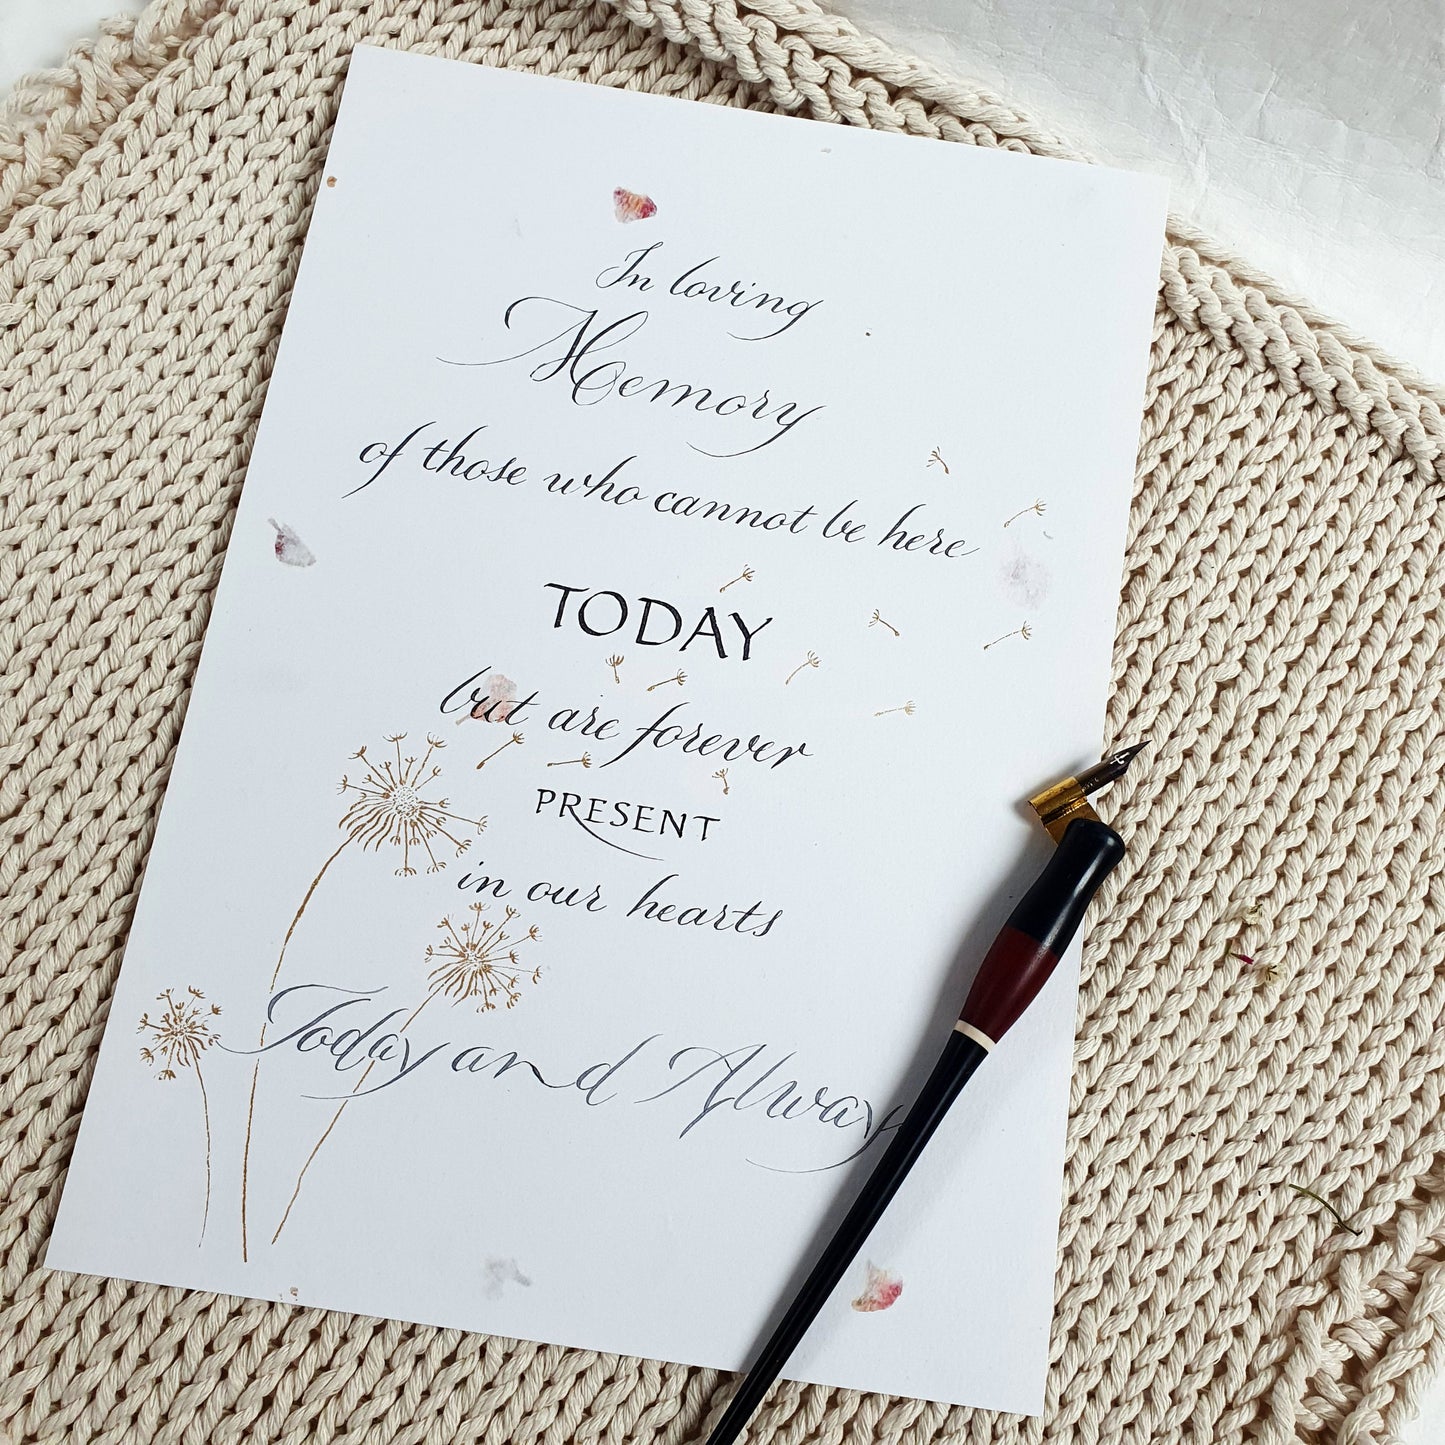 In loving
Memory
of those who cannot be here
TODAY
but are forever
PRESENT
in our hearts
Today and Always